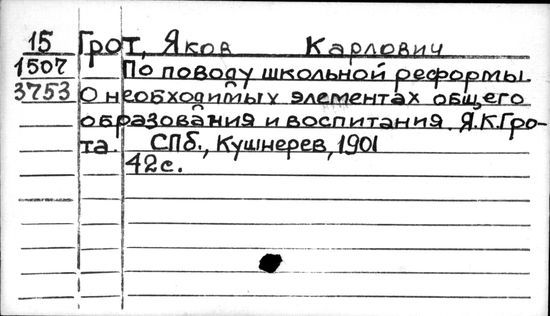 15 Грот, Яков Карлович
1507 По поводу школьной реформы.
3753 О необходимых элементах общего
образования и воспитания. Я.К.Гро-
та. СПб., Кушнерев, 1901
42с.